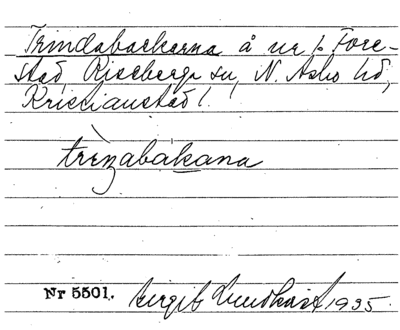 Trindabackarna å nr 1 Fore-
stad, Riseberga sn, N. Åsbo hd,
Kristianstad l.
trinabakana
Nr 5501. Birgit Lundkvist 1935.